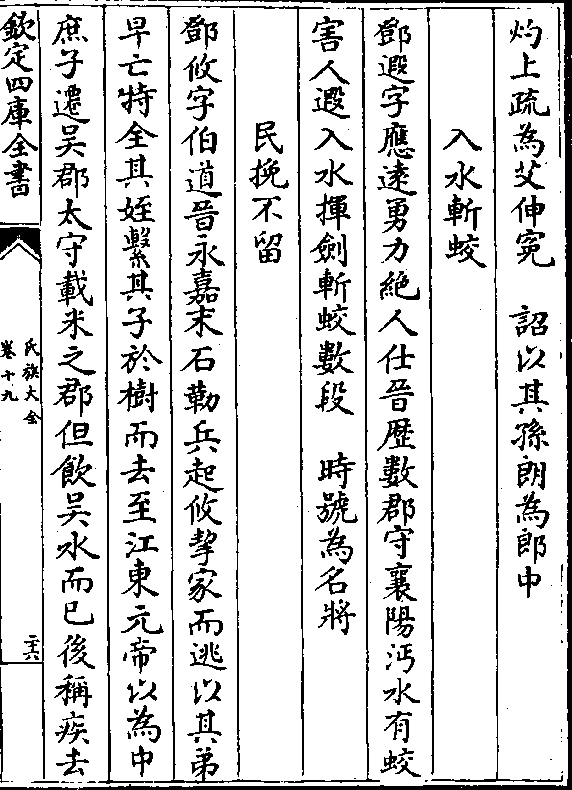 灼上疏為艾伸寃　詔以其孫朗為郎中
入水斬蛟
鄧遐字應逺勇力絶人仕晉歴數郡守襄陽沔水有蛟
害人遐入水揮劍斬蛟數段　時號為名將
民挽不留
鄧攸字伯道晉永嘉末石勒兵起攸挈家而逃以其弟
早亡特全其姪繫其子於樹而去至江東元帝以為中
庶子遷吴郡太守載米之郡但飲吴水而已後稱疾去
欽定四庫全書
氏族大全
卷十九
二六